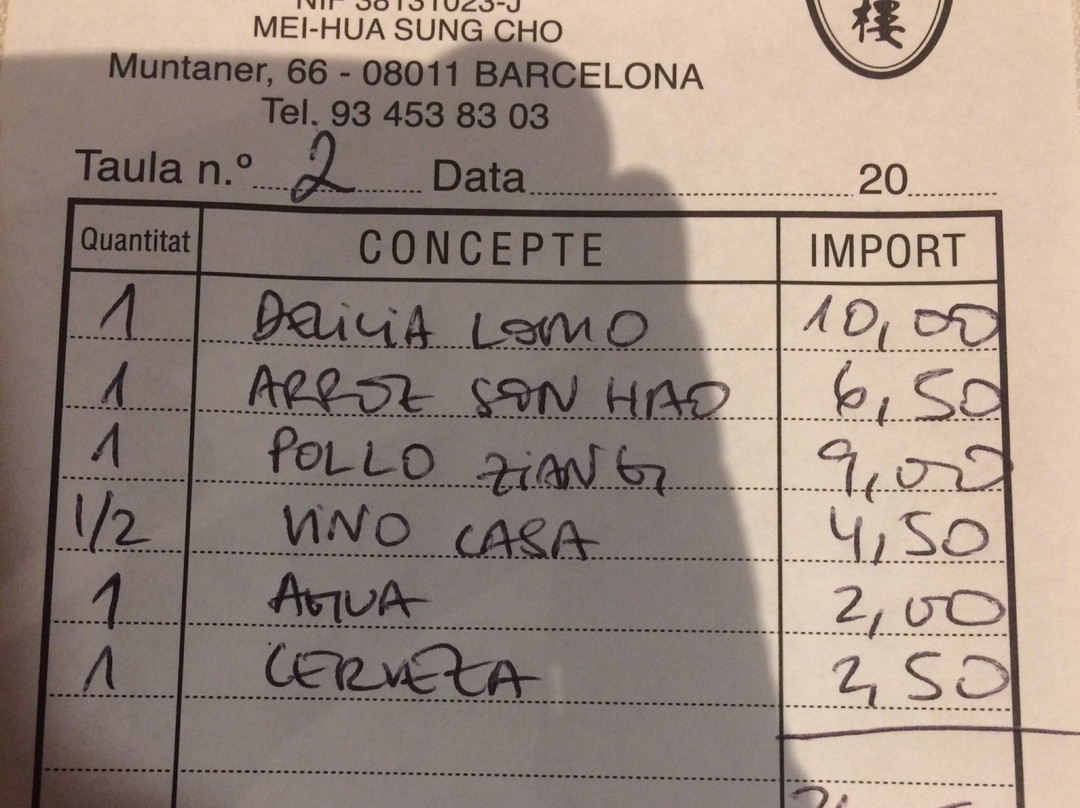 NIF 38131023-J
MEI-HUA SUNG CHO
Muntaner, 66 - 08011 BARCELONA
Tel. 93 453 83 03
樓
Taula n.º 2 Data 20
Quantitat CONCEPTE IMPORT
1 DELICIA LOMO 10,00
1 ARROZ SON HAO 6,50
1 POLLO ZIANG 9,00
1/2 VINO CASA 4,50
1 AGUA 2,00
1 CERVEZA 2,50